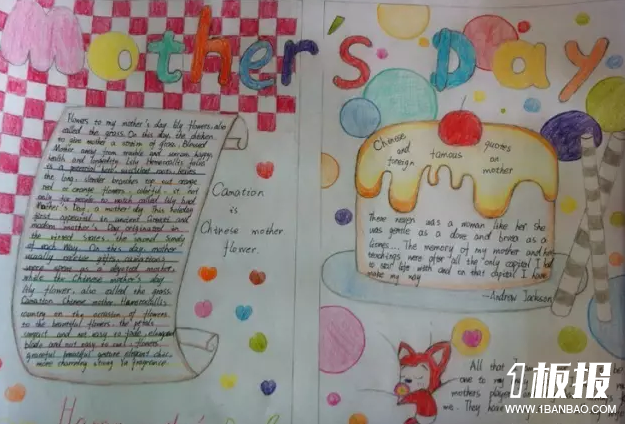 Mother's Day
Flowers to my mother's day lily flowers, also
called the grass. On this day, the children
to give mother a
Mother away from
health and longevity. Lily Hemerocallis
is a perennial herb, succulent root, leaves
the long, slender branches top out orange
red or orange flowers, colorful, it not
only for people to watch called lily bud.
Mother's Day, a mother day. This holiday
first appeared in ancient Greece; and
modern mother's Day originated in
the United States, the second Sunday
of each May. On this day, mother
usually receive gifts, carnations
were seen as a devoted mother,
while the Chinese mother's day
lily flower, also called the grass.
Carnation Chinese mother Hemerocallis
on the occasion of flowers
to the beautiful flowers, the petals
compact and not easy to fade,
and not easy to curl, flowers
graceful peaceful
more charming, strong fragrance.
Carnation
is
Chinese mother
flower.
Chinese and foreign famous quotes on mother
There never was a woman like her. she
was gentle as a dove and brave as a
lioness... The memory of my mother and her
teachings were after all the only capital I had
to start life with and on that capital I have
make my way
—Andrew Jackson
All that I
one to my
mothers prayer
me. They have
1板报
WWW.1BANBAO.COM